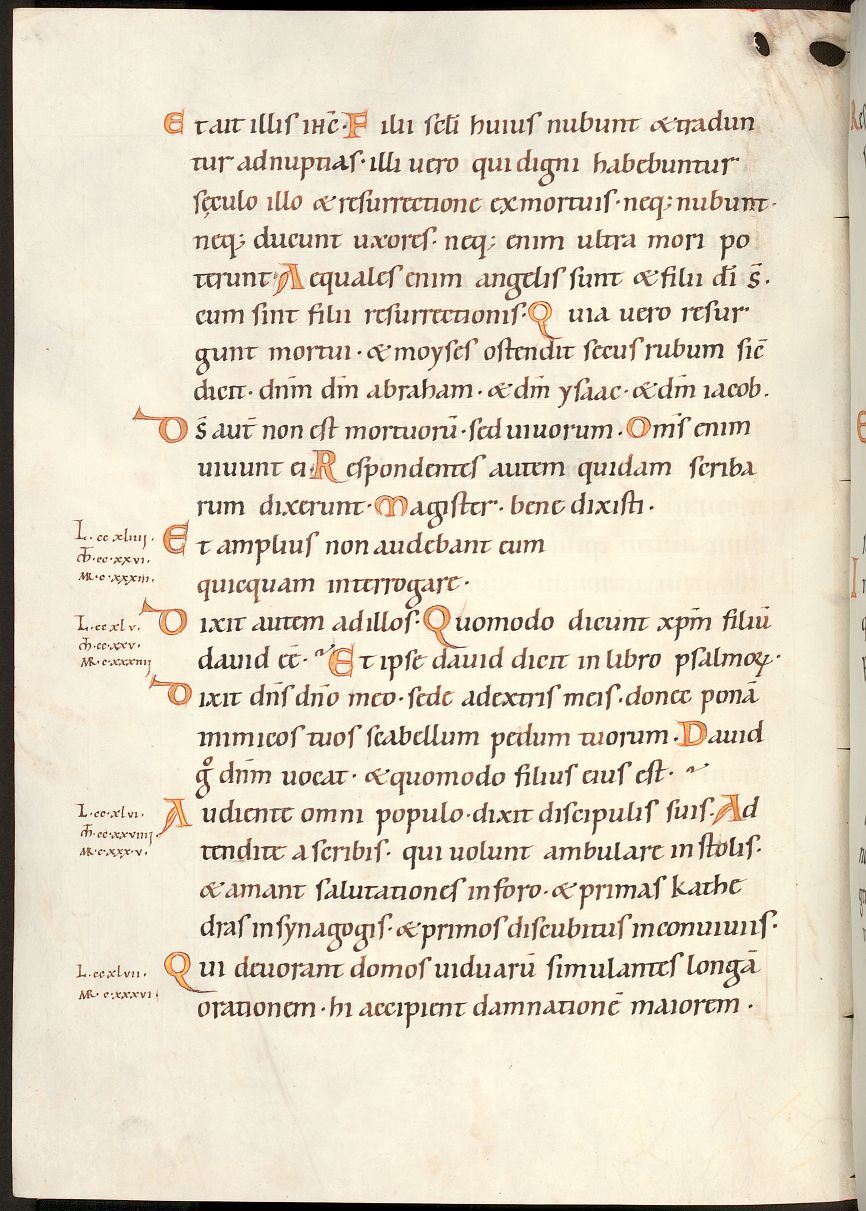 Et ait illis ihc̄. Filii sclī huius nubunt & tradun
tur ad nuptias. illi uero qui digni habebuntur
sęculo illo & resurrectione ex mortuis. neq; nubunt.
neq; ducunt uxores. neq; enim ultra mori po
terunt. Aequales enim angelis sunt & filii dī s̄.
cum sint filii resurrectionis. Quia uero resur
gunt mortui. & moyses ostendit secus rubum sic̄
dicit. dnm̄ dm̄ abraham. & dm̄ ysaac. & dm̄ iacob.
Ds̄ aut̄ non est mortuorū. sed uiuorum. Oms̄ enim
uiuunt ei. Respondentes autem quidam scriba
rum dixerunt. Magister. bene dixisti.
L. cc xliiii. Et amplius non audebant eum
m̄. cc. xxvi.
MR. c. xxxiii. quicquam interrogare.
L. cc xlv. Dixit autem ad illos. Quomodo dicunt xpm̄ filiū
m̄. cc. xxv.
MR. c. xxxiiii dauid ēē. Et ipse dauid dicit in libro psalmoꝝ.
Dixit dns̄ dnō meo. sede a dextris meis. donec ponā
inimicos tuos scabellum pedum tuorum. Dauid
gͦ dnm̄ uocat. & quomodo filius eius est.
L. cc. xlvi. Audiente omni populo. dixit discipulis suis. Ad
m̄. cc. xxviiii.
MR. c. xxx. v. tendite a scribis. qui uolunt ambulare in stolis.
& amant salutationes in foro. & primas kathe
dras in synagogis. & primos discubitus in conuiuiis.
L. cc xlvii. Qui deuorant domos uiduarū simulantes longā
MR. c. xxxvi orationem. hi accipient damnationē maiorem.